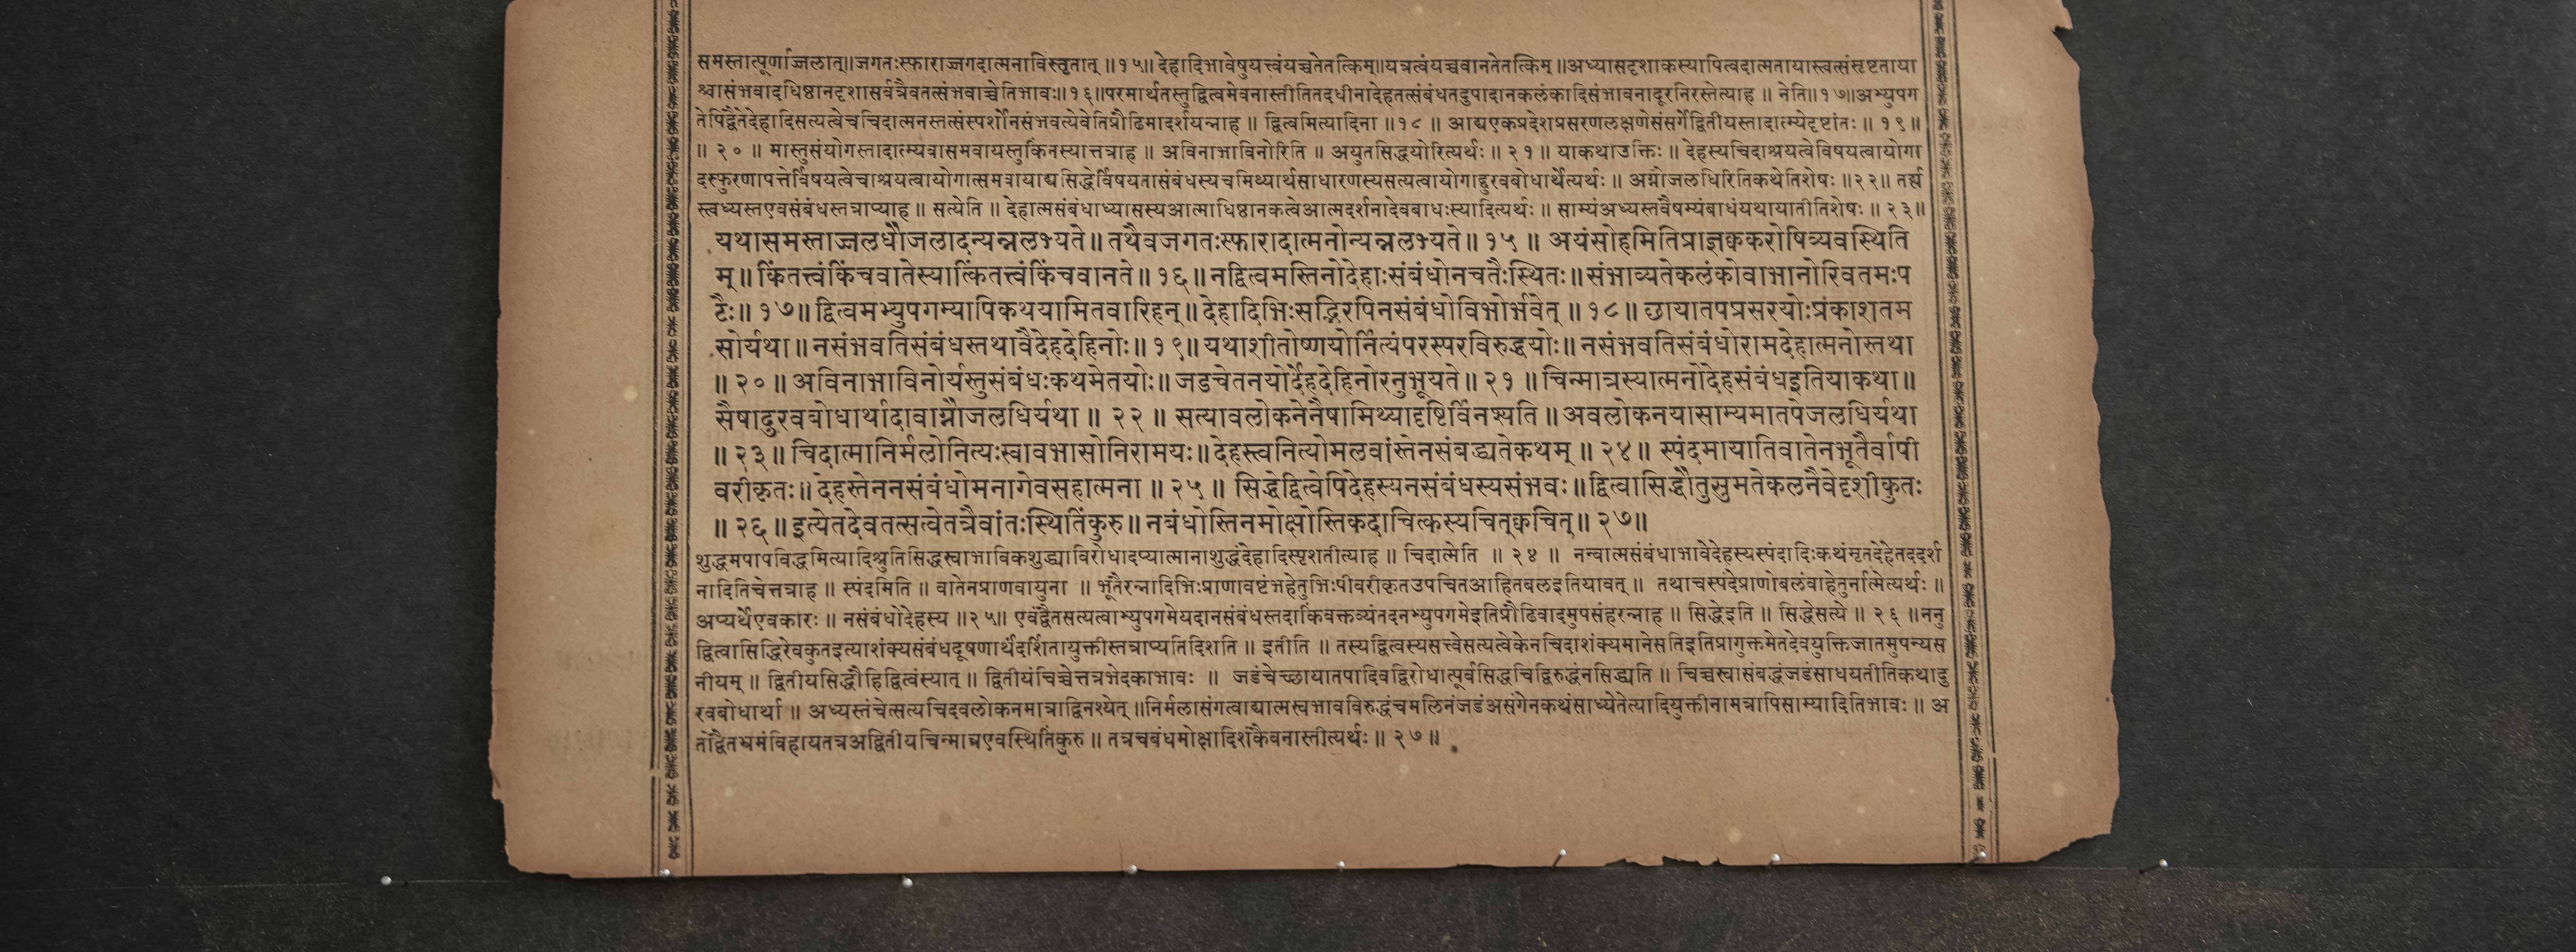 समस्तात्पूर्णाज्जलात्॥जगतःस्फाराज्जगदात्मनाविस्तृतात् ॥१५॥ देहादिभावेषुयत्त्वंयच्चतेतत्किम्॥यत्रत्वंयच्चवानतेतत्किम् ॥अध्यासदृशाकस्यापित्वदात्मतायास्त्वत्संसृष्टताया
श्चासंभवादधिष्ठानदृशासर्वत्रैवतत्संभवाच्चेतिभावः॥१६॥परमार्थतस्तुद्वित्वमेवनास्तीतितदधीनादेहतत्संबंधतदुपादानकलंकादिसंभावनादूरनिरस्तेत्याह ॥ नेति॥१७॥अभ्युपग
तेपिद्वैतेदेहादिसत्यत्वेचचिदात्मनस्तत्संस्पर्शोनसंभवत्येवेतिप्रौढिमादर्शयन्नाह ॥ द्वित्वमित्यादिना ॥१८ ॥ आद्यएकप्रदेशप्रसरणलक्षणेसंसर्गेद्वितीयस्तादात्म्येदृष्टांतः ॥ १९॥
॥ २० ॥ मास्तुसंयोगस्तादात्म्यंवासमवायस्तुकिंनस्यात्तत्राह ॥ अविनाभाविनोरिति ॥ अयुतसिद्धयोरित्यर्थः ॥ २१ ॥ याकथाउक्तिः ॥ देहस्यचिदाश्रयत्वेविषयत्वायोगा
दस्फुरणापत्तेर्विषयत्वेचाश्रयत्वायोगात्समवायाद्यसिद्धेर्विषयतासंबंधस्यचमिथ्यार्थसाधारणस्यसत्यत्वायोगाद्दुरवबोधार्थेत्यर्थः ॥ अग्नौजलधिरितिकथेतिशेषः ॥२२॥ तर्ह्य
स्त्वध्यस्तएवसंबंधस्तत्राप्याह ॥ सत्येति ॥ देहात्मसंबंधाध्यासस्यआत्माधिष्ठानकत्वेआत्मदर्शनादेवबाधःस्यादित्यर्थः ॥ साम्यंअध्यस्तवैषम्यंबाधंयथायातीतिशेषः ॥ २३॥
यथासमस्ताज्जलधौजलादन्यन्नलभ्यते॥ तथैवजगतःस्फारादात्मनोन्यन्नलभ्यते॥ १५ ॥ अयंसोहमितिप्राज्ञक्वकरोषिव्यवस्थिति
म्॥ किंतत्त्वंकिंचवातेस्यात्किंतत्त्वंकिंचवानते॥ १६॥ नद्वित्वमस्तिनोदेहाःसंबंधोनचतैःस्थितः॥ संभाव्यतेकलंकोवाभानोरिवतमःप
टैः॥ १७॥ द्वित्वमभ्युपगम्यापिकथयामितवारिहन्॥ देहादिभिःसद्भिरपिनसंबंधोविभोर्भवेत् ॥ १८॥ छायातपप्रसरयोःप्रंकाशतम
सोर्यथा॥ नसंभवतिसंबंधस्तथावैदेहदेहिनोः॥ १९॥ यथाशीतोष्णयोर्नित्यंपरस्परविरुद्धयोः॥ नसंभवतिसंबंधोरामदेहात्मनोस्तथा
॥ २०॥ अविनाभाविनोर्यस्तुसंबंधःकथमेतयोः॥ जडचेतनयोर्देहदेहिनोरनुभूयते॥ २१ ॥ चिन्मात्रस्यात्मनोदेहसंबंधइतियाकथा॥
सैषादुरवबोधार्थादावाग्नौजलधिर्यथा ॥ २२ ॥ सत्यावलोकनेनैषामिथ्यादृष्टिर्विनश्यति ॥ अवलोकनयासाम्यमातपेजलधिर्यथा
॥ २३॥ चिदात्मानिर्मलोनित्यःस्वावभासोनिरामयः॥ देहस्त्वनित्योमलवांस्तेनसंबद्ध्यतेकथम् ॥ २४॥ स्पंदमायातिवातेनभूतैर्वापी
वरीकृतः॥ देहस्तेननसंबंधोमनागेवसहात्मना ॥ २५ ॥ सिद्धेद्वित्वेपिदेहस्यनसंबंधस्यसंभवः॥ द्वित्वासिद्धौतुसुमतेकलनैवेदृशीकुतः
॥ २६॥ इत्येतदेवतत्सत्वेतत्रैवांतःस्थितिंकुरु॥ नबंधोस्तिनमोक्षोस्तिकदाचित्कस्यचित्क्वचित्॥ २७॥
शुद्धमपापविद्धमित्यादिश्रुतिसिद्धस्वाभाविकशुद्ध्याविरोधादप्यात्मानाशुद्धंदेहादिस्पृशतीत्याह ॥ चिदात्मेति ॥ २४ ॥ नन्वात्मसंबंधाभावेदेहस्यस्पंदादिःकथंमृतदेहेतददर्श
नादितिचेत्तत्राह ॥ स्पंदमिति ॥ वातेनप्राणवायुना ॥ भूतैरन्नादिभिःप्राणावष्टंभहेतुभिःपीवरीकृतउपचितआहितबलइतियावत् ॥ तथाचस्पंदेप्राणोबलंवाहेतुर्नात्मेत्यर्थः ॥
अप्यर्थेएवकारः ॥ नसंबंधोदेहस्य ॥२५॥ एवंद्वैतसत्यत्वाभ्युपगमेयदानसंबंधस्तदाकिंवक्तव्यंतदनभ्युपगमेइतिप्रौढिवादमुपसंहरन्नाह ॥ सिद्धेइति ॥ सिद्धेसत्ये ॥ २६ ॥ननु
द्वित्वासिद्धिरेवकुतइत्याशंक्यसंबंधदूषणार्थंदर्शितायुक्तीस्तत्राप्यतिदिशति ॥ इतीति ॥ तस्यद्वित्वस्यसत्त्वेसत्यत्वेकेनचिदाशंक्यमानेसतिइतिप्रागुक्तमेतदेवयुक्तिजातमुपन्यस
नीयम् ॥ द्वितीयसिद्धौहिद्वित्वंस्यात् ॥ द्वितीयंचिच्चेत्तत्रभेदकाभावः ॥ जडंचेच्छायातपादिवद्विरोधात्पूर्वसिद्धचिद्विरुद्धंनसिद्ध्यति ॥ चिच्चस्वासंबद्धंजडंसाधयतीतिकथादु
रवबोधार्था ॥ अध्यस्तंचेत्सत्यचिदवलोकनमात्राद्विनश्येत् ॥निर्मलासंगत्वाद्यात्मस्वभावविरुद्धंचमलिनंजडंअसंगेनकथंसाध्येतेत्यादियुक्तीनामत्रापिसाम्यादितिभावः ॥ अ
तोद्वैतभ्रमंविहायतत्रअद्वितीयचिन्मात्रएवस्थितिंकुरु ॥ तत्रचबंधमोक्षादिशंकैवनास्तीत्यर्थः ॥ २७ ॥